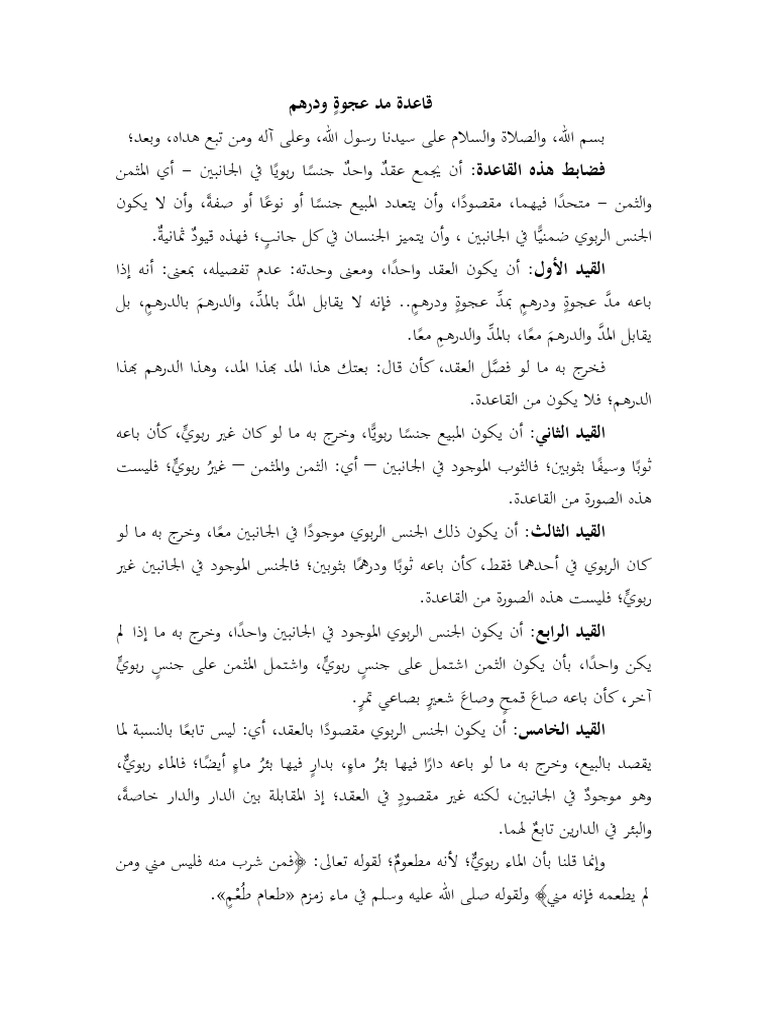 قاعدة مد عجوةٍ ودرهم
بسم الله، والصلاة والسلام على سيدنا رسول الله، وعلى آله ومن تبع هداه، وبعد؛
فضابط هذه القاعدة: أن يجمع عقدٌ واحدٌ جنسًا ربويًا في الجانبين – أي المثمن
والثمن – متحدًا فيهما، مقصودًا، وأن يتعدد المبيع جنسًا أو نوعًا أو صفةً، وأن لا يكون
الجنس الربوي ضمنيًّا في الجانبين ، وأن يتميز الجنسان في كل جانبٍ؛ فهذه قيودٌ ثمانيةٌ.
القيد الأول: أن يكون العقد واحدًا، ومعنى وحدته: عدم تفصيله، بمعنى: أنه إذا
باعه مدَّ عجوةٍ ودرهمٍ بمدِّ عجوةٍ ودرهمٍ.. فإنه لا يقابل المدَّ بالمدِّ، والدرهمَ بالدرهمٍ، بل
يقابل المدَّ والدرهمَ معًا، بالمدِّ والدرهمِ معًا.
فخرج به ما لو فصَّل العقد، كأن قال: بعتك هذا المد بهذا المد، وهذا الدرهم بهذا
الدرهم؛ فلا يكون من القاعدة.
القيد الثاني: أن يكون المبيع جنسًا ربويًّا، وخرج به ما لو كان غير ربويٍّ، كأن باعه
ثوبًا وسيفًا بثوبين؛ فالثوب الموجود في الجانبين – أي: الثمن والمثمن – غيرُ ربويٍّ؛ فليست
هذه الصورة من القاعدة.
القيد الثالث: أن يكون ذلك الجنس الربوي موجودًا في الجانبين معًا، وخرج به ما لو
كان الربوي في أحدهما فقط، كأن باعه ثوبًا ودرهمًا بثوبين؛ فالجنس الموجود في الجانبين غير
ربويٍّ؛ فليست هذه الصورة من القاعدة.
القيد الرابع: أن يكون الجنس الربوي الموجود في الجانبين واحدًا، وخرج به ما إذا لم
يكن واحدًا، بأن يكون الثمن اشتمل على جنسٍ ربويٍّ، واشتمل المثمن على جنسٍ ربويٍّ
آخر، كأن باعه صاعَ قمحٍ وصاعَ شعيرٍ بصاعي تمرٍ.
القيد الخامس: أن يكون الجنس الربوي مقصودًا بالعقد، أي: ليس تابعًا بالنسبة لما
يقصد بالبيع، وخرج به ما لو باعه دارًا فيها بئرُ ماءٍ، بدارٍ فيها بئرُ ماءٍ أيضًا؛ فالماء ربويٌّ،
وهو موجودٌ في الجانبين، لكنه غير مقصودٍ في العقد؛ إذ المقابلة بين الدار والدار خاصةً،
والبئر في الدارين تابعٌ لهما.
وإنما قلنا بأن الماء ربويٌّ؛ لأنه مطعومٌ؛ لقوله تعالى: ﴿فمن شرب منه فليس مني ومن
لم يطعمه فإنه مني﴾ ولقوله صلى الله عليه وسلم في ماء زمزم «طعام طُعْمٍ».